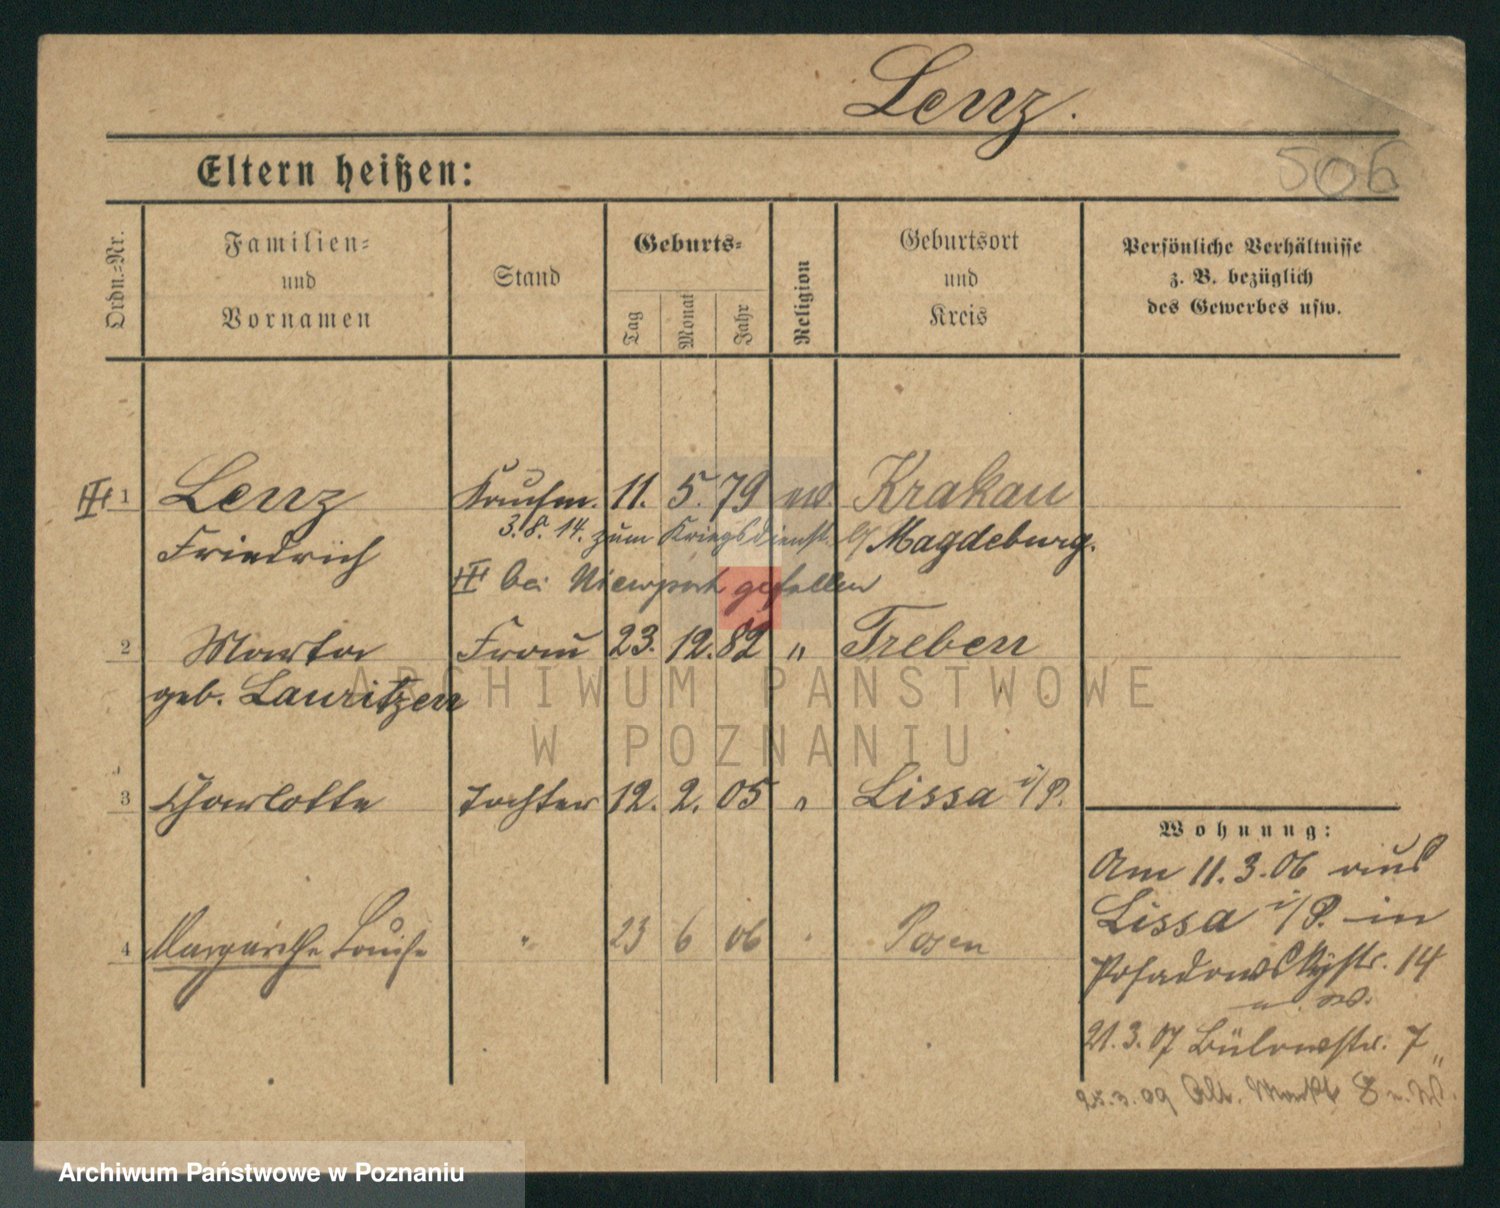 Lenz.
Eltern heißen:
506
Ordn.=Nr.
Familien=
und
Vornamen
Stand
Geburts=
Tag
Monat
Jahr
Religion
Geburtsort
und
Kreis
Persönliche Verhältnisse
z. B. bezüglich
des Gewerbes usw.
1 Lenz Kaufm. 11. 5. 79 Krakau
3. 8. 14. zum Kriegsdienst. b/ Magdeburg.
Friedrich
bei Nieuport gefallen
2 Marta Frau 23. 12. 82 " Treben
geb. Lauritzen
ARCHIWUM PAŃSTWOWE
W POZNANIU
3 Charlotte Tochter 12. 2. 05 " Lissa i/P.
Wohnung:
Am 11. 3. 06 aus
Lissa i/P. in
4 Margarethe Louise " 23 6 06 " Posen
Posadowskystr. 14
21. 3. 07 Bülowstr. 7
25. 3. 09 Alt. Markt 8
Archiwum Państwowe w Poznaniu